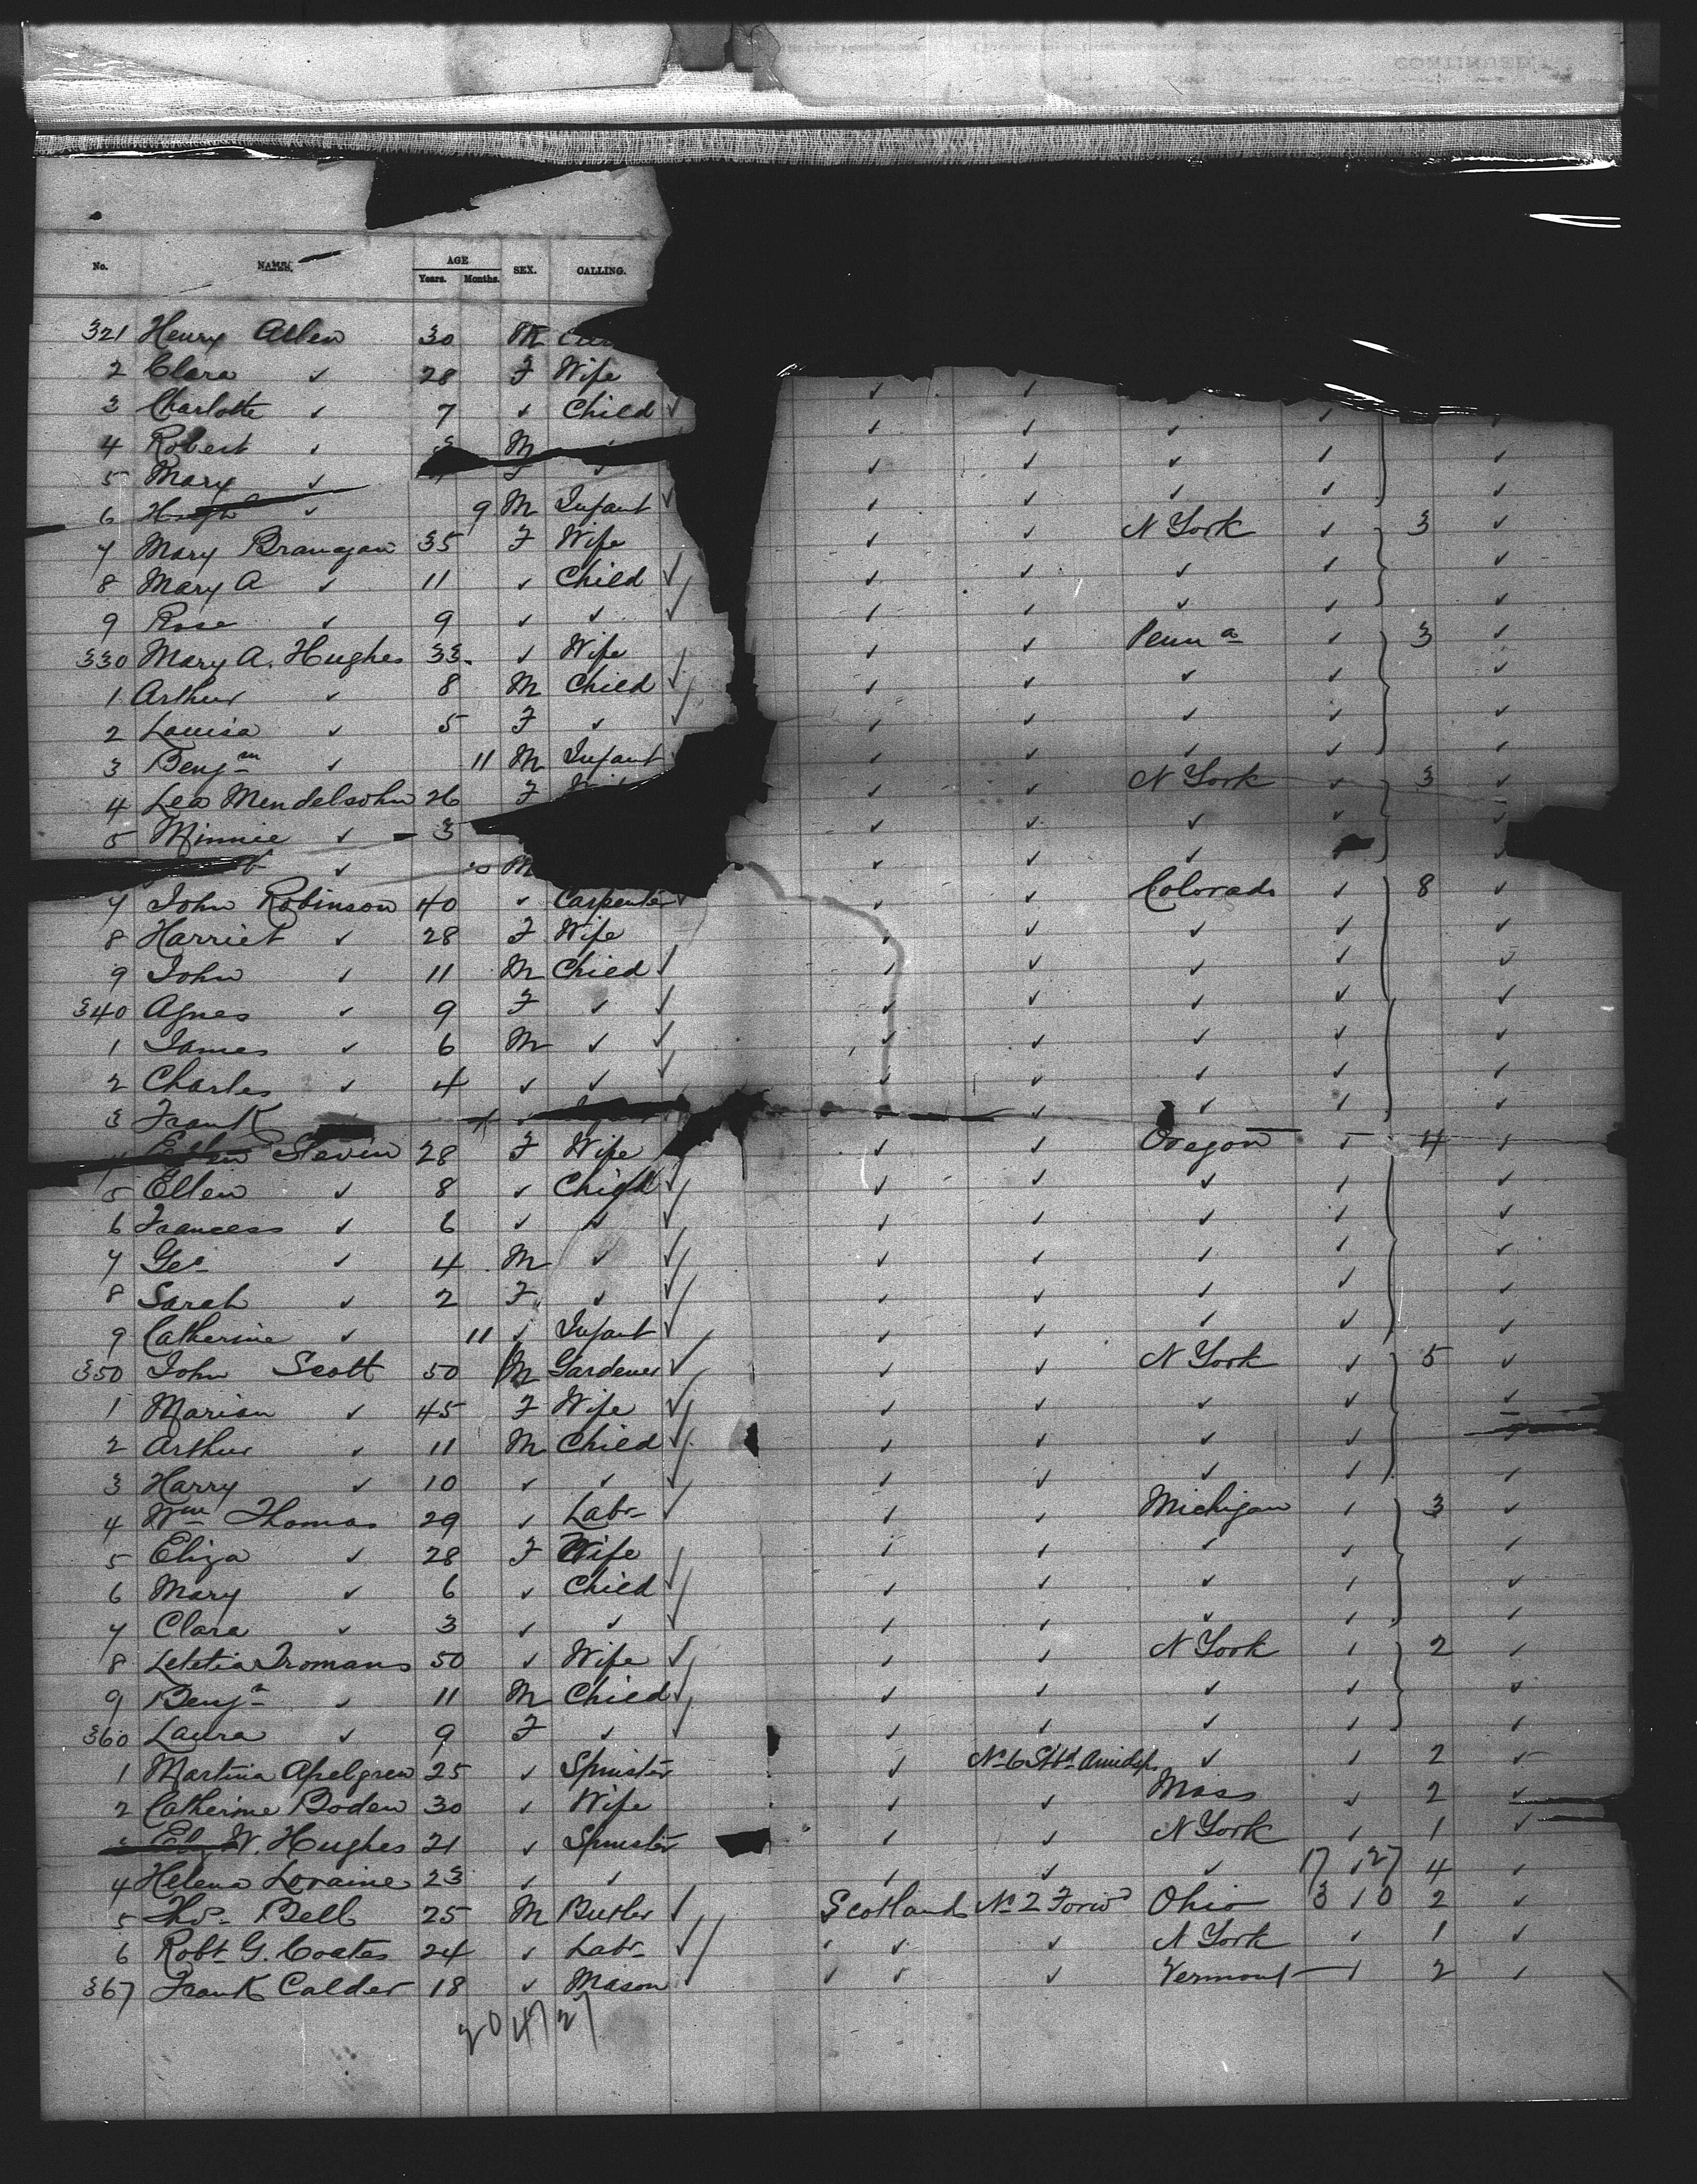 CONTINUED
No. NAME. AGE SEX. CALLING.
Years. Months.
321 Henry Allen 30 M
2 Clara ✓ 28 F Wife ✓ ✓
3 Charlotte ✓ 7 ✓ Child ✓ ✓ ✓ ✓ ✓
4 Robert ✓ M ✓ ✓ ✓ ✓ ✓ ✓
5 Mary ✓ F ✓ ✓ ✓ ✓ ✓ ✓
6 Hugh ✓ 9 M Infant ✓
7 Mary Branagan 35 F Wife ✓ ✓ N York ✓ 3 ✓
8 Mary A ✓ 11 ✓ Child ✓ ✓ ✓ ✓ ✓ ✓
9 Rose ✓ 9 ✓ ✓ ✓ ✓ ✓ ✓ ✓
330 Mary A. Hughes 33 ✓ Wife ✓ ✓ Penn a ✓ 3 ✓
1 Arthur ✓ 8 M Child ✓ ✓ ✓ ✓ ✓ ✓
2 Louisa ✓ 5 F ✓ ✓ ✓ ✓ ✓ ✓ ✓
3 Benj m ✓ 11 M Infant ✓ ✓ ✓ ✓ ✓
4 Lea Mendelsohn 26 F ✓ ✓ N York ✓ 3 ✓
5 Minnie ✓ 3 ✓ ✓ ✓ ✓ ✓
✓ 10 M ✓ ✓ ✓ ✓
7 John Robinson 40 ✓ Carpenter ✓ ✓ ✓ Colorado ✓ 8 ✓
8 Harriet ✓ 28 F Wife ✓ ✓ ✓ ✓ ✓
9 John ✓ 11 M Child ✓ ✓ ✓ ✓ ✓ ✓
340 Agnes ✓ 9 F ✓ ✓ ✓ ✓ ✓ ✓ ✓
1 James ✓ 6 M ✓ ✓ ✓ ✓ ✓ ✓ ✓
2 Charles ✓ 4 ✓ ✓ ✓ ✓ ✓ ✓ ✓ ✓
3 Frank ✓ ✓ ✓ ✓
Slevin 28 F Wife ✓ ✓ Oregon ✓ 4 ✓
5 Ellen ✓ 8 ✓ Child ✓ ✓ ✓ ✓ ✓ ✓
6 Francess ✓ 6 ✓ ✓ ✓ ✓ ✓ ✓ ✓ ✓
7 Geo ✓ 4 M ✓ ✓ ✓ ✓ ✓ ✓ ✓
8 Sarah ✓ 2 F ✓ ✓ ✓ ✓ ✓ ✓ ✓
9 Catherine ✓ 11 ✓ Infant ✓ ✓ ✓ ✓ ✓ ✓
350 John Scott 50 M Gardener ✓ ✓ ✓ N York ✓ 5 ✓
1 Marion ✓ 45 F Wife ✓ ✓ ✓ ✓ ✓ ✓
2 Arthur ✓ 11 M Child ✓ ✓ ✓ ✓ ✓ ✓
3 Harry ✓ 10 ✓ ✓ ✓ ✓ ✓ ✓ ✓ ✓
4 Wm Thomas 29 ✓ Labr ✓ ✓ ✓ Michigan ✓ 3 ✓
5 Eliza ✓ 28 F Wife ✓ ✓ ✓ ✓ ✓
6 Mary ✓ 6 ✓ Child ✓ ✓ ✓ ✓ ✓ ✓
7 Clara ✓ 3 ✓ ✓ ✓ ✓ ✓ ✓ ✓ ✓
8 Letetia Tromans 50 ✓ Wife ✓ ✓ ✓ N York ✓ 2 ✓
9 Benj n ✓ 11 M Child ✓ ✓ ✓ ✓ ✓ ✓
360 Laura ✓ 9 F ✓ ✓ ✓ ✓ ✓ ✓ ✓
1 Martina Apelgren 25 ✓ Spinster ✓ No 6 Stbd Amidsps ✓ ✓ 2 ✓
2 Catherine Boden 30 ✓ Wife ✓ ✓ Mass ✓ 2 ✓
W. Hughes 21 ✓ Spinster ✓ ✓ N York ✓ 1 ✓
4 Helena Loraine 23 ✓ ✓ ✓ ✓ ✓ 17 ✓ 27 4 ✓
5 Thos Bell 25 M Butler ✓ Scotland No 2 Forwd Ohio 3 1 0 2 ✓
6 Robt G. Coates 24 ✓ Labr ✓ ✓ ✓ N York ✓ 1 ✓
367 Frank Calder 18 ✓ Mason ✓ ✓ ✓ Vermont ✓ 2 ✓